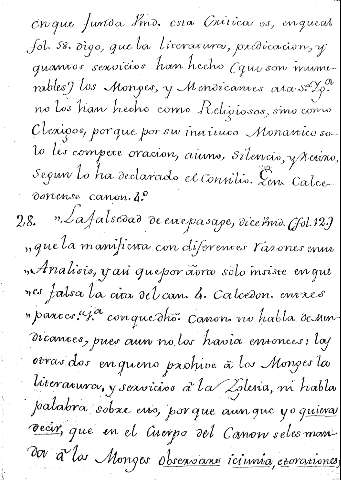 en que funda Pmd. esta Critica es, en que al
fol. 58. digo, que la literatura, predicacion, y
quantos servicios han hecho (que son innume-
rables) los Monges, y Mendicantes a la S.ta Ygª
no los han hecho como Religiosos, sino como
Clerigos, porque por su instituto Monastico so-
lo les compete oracion, aiuno, silencio, y retiro,
segun lo ha declarado el Concilio Gen. Calce-
donense canon. 4.º
28. „La falsedad de este pasage, dice Pmd. (fol. 12.)
„que la manifiesta con diferentes razones en su
„Analisis, y asi que por ahora solo insiste en que
„es falsa la cita del can. 4. Calcedon. en tres
„partes. 1.ª con que dho Canon no habla de Men-
dicantes, pues aun no los havia entonces; las
otras dos en que no prohive â los Monges la
literatura, y servicios â la Yglesia, ni habla
palabra sobre eso, porque aunque yo quiera
decir, que en el Cuerpo del Canon se les man-
da â los Monges observare ieiunia, et orationes,